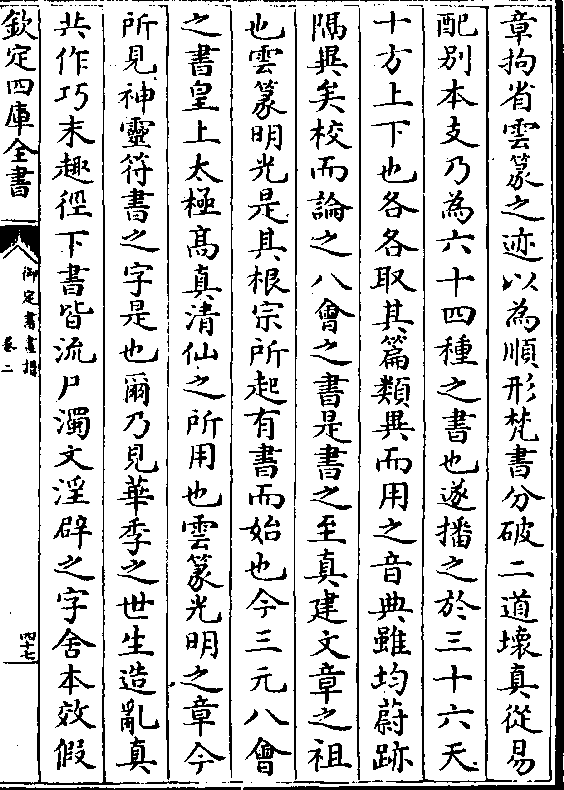 章拘省雲篆之迹以為順形梵書分破二道壊真從易
配别本支乃為六十四種之書也遂播之於三十六天
十方上下也各各取其篇類異而用之音典雖均蔚跡
隅異矣校而論之八會之書是書之至真建文章之祖
也雲篆明光是其根宗所起有書而始也今三元八會
之書皇上太極髙真清仙之所用也雲篆光明之章今
所見神靈符書之字是也爾乃見華季之世生造亂真
共作巧末趣徑下書皆流尸濁文淫辟之字舍本效假
欽定四庫全書
御定書畫譜
卷二
四十七